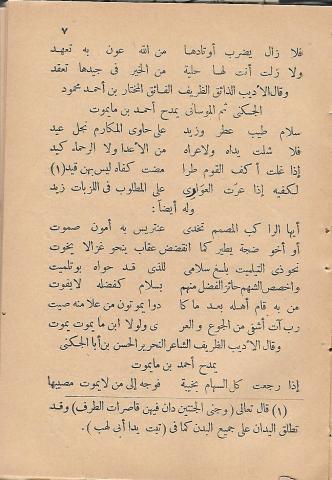 ٧
فلا زال يضرب أوتادها من الله عون به تعهد
ولا زلت أنت لها حلية من الخير في جيدها تعقد
وقال الأديب الذائق الظريف الفائق المختار بن أحمد محمود
الجكنى ثم الموسانى يمدح أحمد بن مايموت
سلام طيب عطر وزيد على حاوى المكارم نجل عيد
فلا شلت يداه ولا عراه من الأعدا ولا الرحماء كيد
إذا غلت أكف القوم طرا مضت كفاه ليس بهن قيد (١)
لكفيه إذا عزت العوارى على المطلوب فى اللزبات زيد
وله أيضا :
أيها الراكب المصمم تخدى عنتريس به أمون صموت
أو أخو ضجة يطير كما انقض عقاب ينحو غزالا بخوت
نحو ذى التبلميت بلغ سلامى للذى قد حواه بوتلميت
واخصص الشهم حائز الفضل منهم بسلام كفضله لا يفوت
من به قام أهله بعد ما كا دوا يموتون من علامنه صيت
رب آت أشفى من الجوع والعر ى ولولا ابن مايموت يموت
وقال الأديب الظريف الشاعر النحرير الحسن بن أبا الجكنى
يمدح أحمد بن مايموت
إذا رجعت كل السهام بخيبة فوجه إلى من لايموت مصيبها
(١) قال تعالى ( وجنى الجنتين دان فيهن قاصرات الطرف ) وقد
تطلق اليدان على جميع البدن كما فى ( تبت يدا أبى لهب ) .